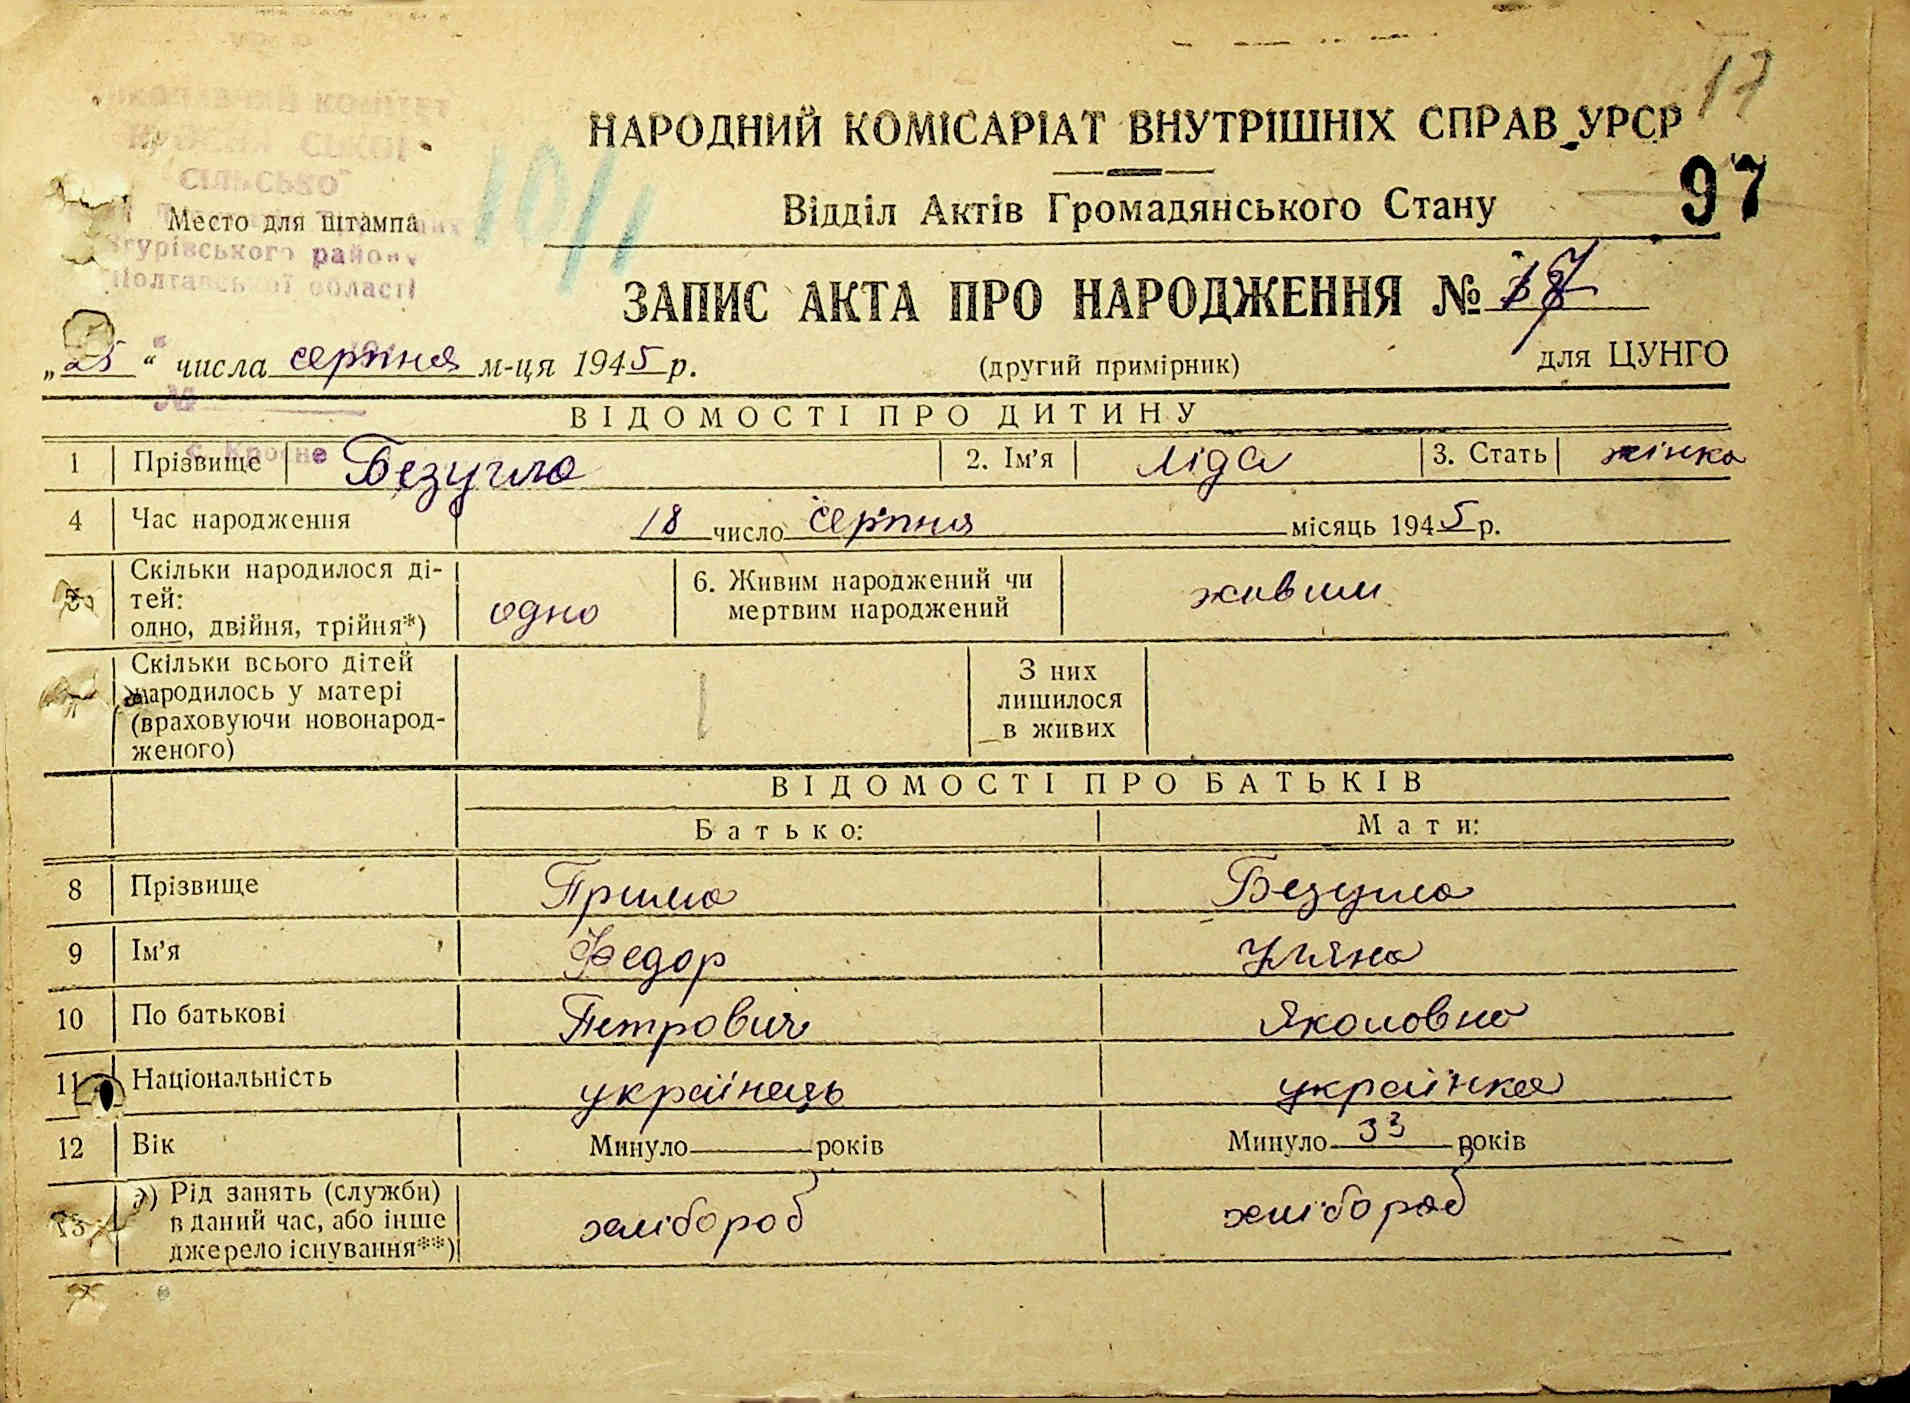 17
НАРОДНИЙ КОМІСАРІАТ ВНУТРІШНІХ СПРАВ УРСР
97
Відділ Актів Громадянського Стану
10/1
КОМІТЕТ
Место для штампа
району
Полтавської області
ЗАПИС АКТА ПРО НАРОДЖЕННЯ № 17
„25“ числа серпня м-ця 1945 р.
(другий примірник)
для ЦУНГО
№
ВІДОМОСТІ ПРО ДИТИНУ
1 Прізвище Безугла 2. Ім'я Ліда 3. Стать жінка
4 Час народження 18 число серпня місяць 1945 р.
5 Скільки народилося ді-
тей:
одно, двійня, трійня*)
одно
6. Живим народжений чи
мертвим народжений
живим
Скільки всього дітей
народилось у матері
(враховуючи новонарод-
женого)
З них
лишилося
в живих
ВІДОМОСТІ ПРО БАТЬКІВ
Батько: Мати:
8 Прізвище Прима Безугла
9 Ім'я Федор Уляна
10 По батькові Петрович Яколовна
11 Національність українець українка
12 Вік Минуло років Минуло 33 років
13 а) Рід занять (служби)
в даний час, або інше
джерело існування**)
хлібороб хлібороб